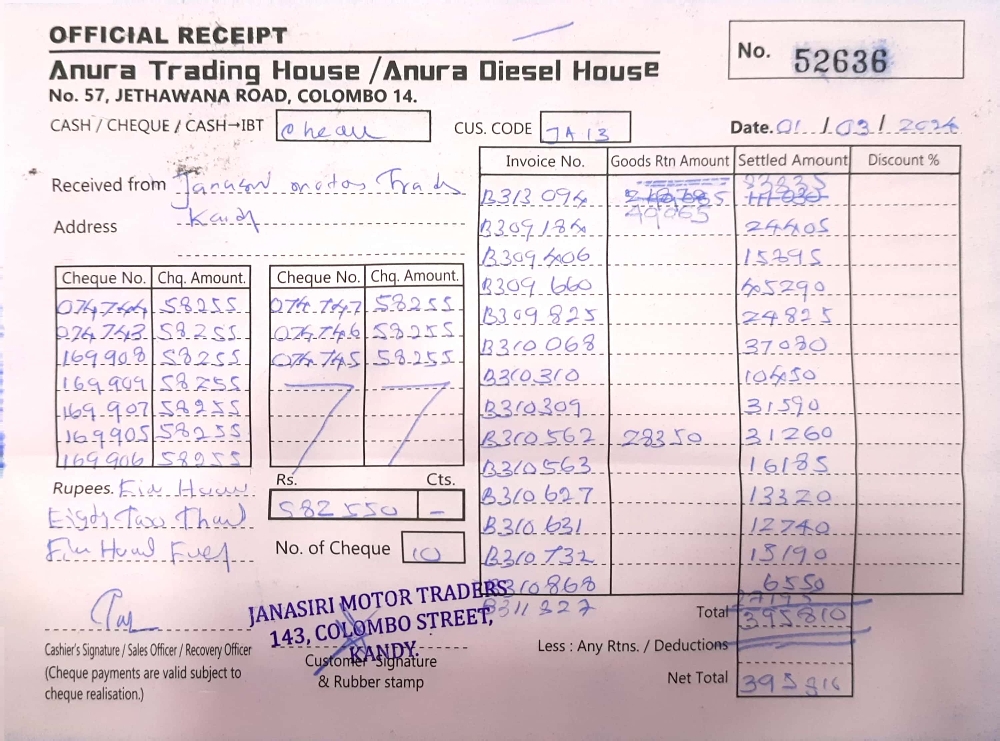 OFFICIAL RECEIPT
Anura Trading House / Anura Diesel House
No. 57, JETHAWANA ROAD, COLOMBO 14.
No. 52636
CASH / CHEQUE / CASH→IBT
CUS. CODE JA 13
Date. 01 / 03 / 2024
Received from
Address
Invoice No. Goods Rtn Amount Settled Amount Discount %
B313094 49965 83835
B309184 24405
B309406 15395
B309660 45290
B309825 24825
B310068 37080
B310310 10450
B310309 31590
B310562 28350 31260
B310563 16185
B310627 13320
B310631 12740
B310732 15190
B310868 6550
B311327 27195
Cheque No. Chq. Amount. Cheque No. Chq. Amount.
074744 58255 074747 58255
074743 58255 074746 58255
169908 58255 074745 58255
169909 58255
169907 58255
169905 58255
169906 58255
Rs. Cts.
582550 –
Rupees.
No. of Cheque 10
Total 395810
Less : Any Rtns. / Deductions
Net Total 395810
JANASIRI MOTOR TRADERS
143, COLOMBO STREET,
KANDY.
Cashier's Signature / Sales Officer / Recovery Officer
(Cheque payments are valid subject to
cheque realisation.)
Customer Signature
& Rubber stamp